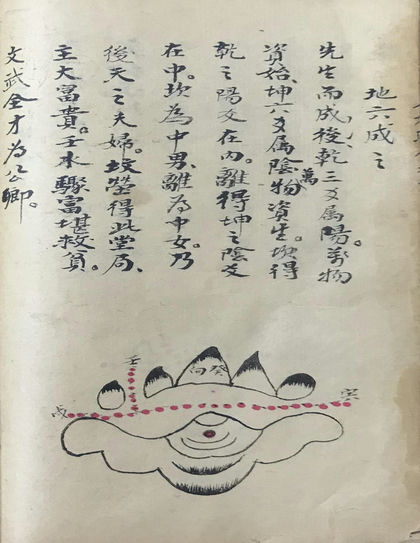 地六成之
先生而成後、乾三爻属陽。萬物
資始、坤六爻属陰、萬物資生。坎得
乾之陽爻在内。離得坤之陰爻
在中。坎為中男、離為中女。乃
後天之夫婦。坟塋得此堂局、
主大富貴。壬水驟富堪救貧。
文武全才為公卿。
癸向
壬
戌